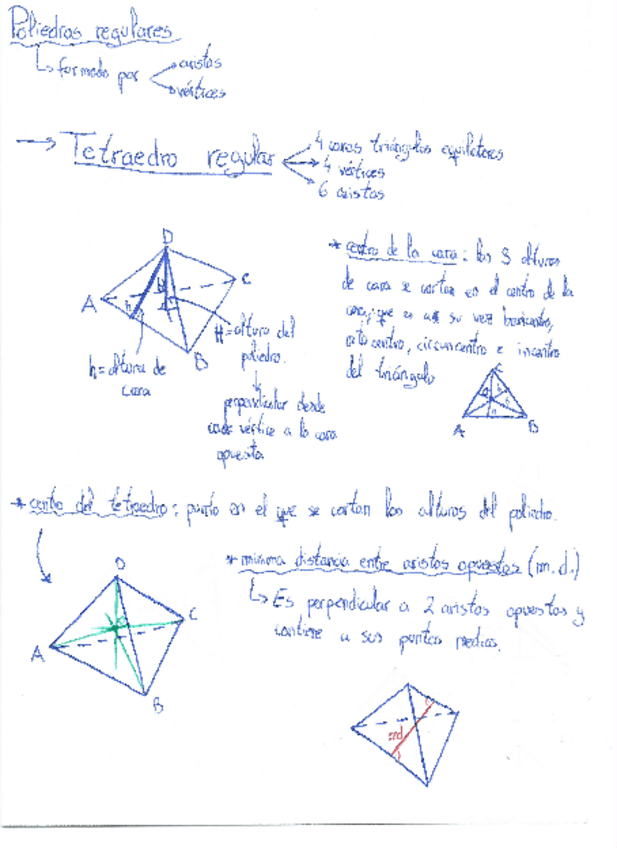 Poliedros regulares
formado por
aristas
vértices
Tetraedro regular
4 caras triángulos equiláteros
4 vértices
6 aristas
D
A
C
B
h
H
h = altura de
cara
H = altura del
poliedro.
perpendicular desde
cada vértice a la cara
opuesta
* centro de la cara: las 3 alturas
de cara se cortan en el centro de la
cara, que es a su vez baricentro,
ortocentro, circuncentro e incentro
del triángulo
C
A
B
* centro del tetraedro: punto en el que se cortan las alturas del poliedro.
D
A
C
B
* mínima distancia entre aristas opuestas (m.d.)
Es perpendicular a 2 aristas opuestas y
contiene a sus puntos medios.
md